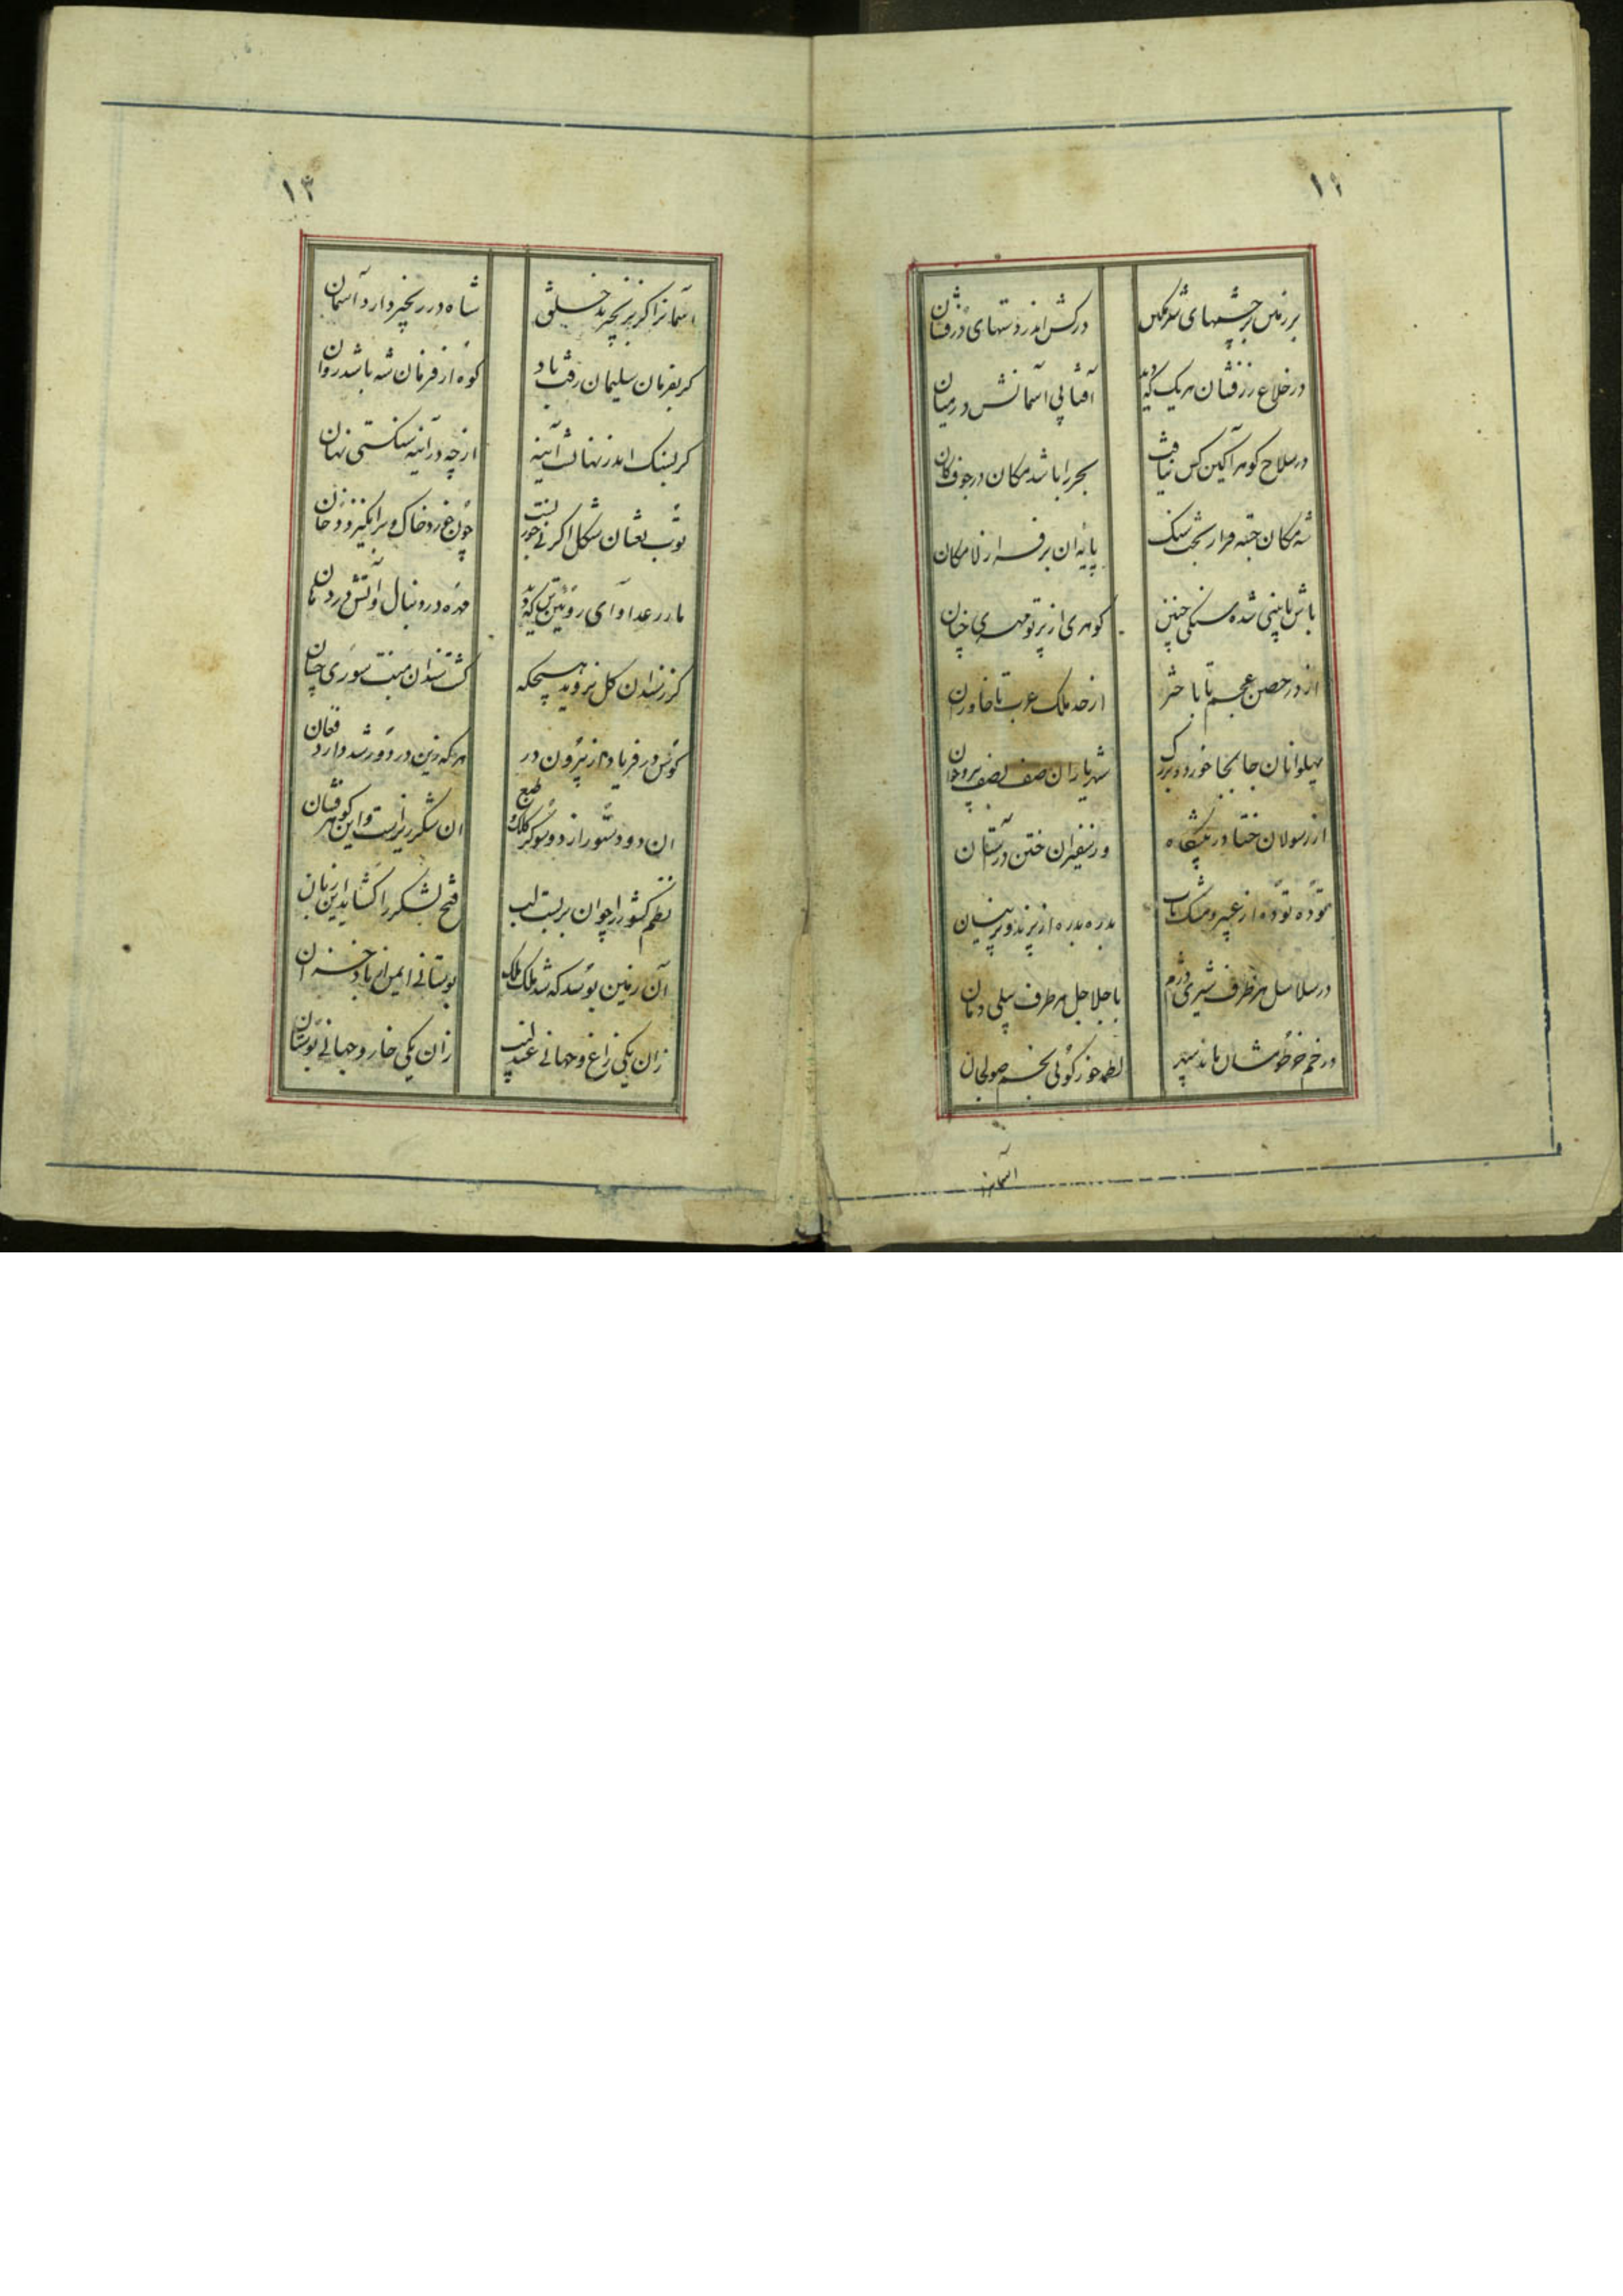 ۱۲
بر زمین بر چشمهای شرمگین
درکش اندر دستهای درفشان
در خلاع زرفشان هر یک که دید
آفتابی آسمانش در میان
در سلاح کوهر آکین کس نیافت
بحر را باشد مکان در جوف کان
شه مکان جسته فراز تخت سنک
پایه ان برفراز لامکان
باش تا بینی شده سنکی چنین
کوهری از پرتو مهری چنان
از در حصن عجم تا باختر
از حد ملک عرب تا خاوران
پهلوانان جا بجا خورد و بزرک
شهریاران صف بصف پیر و جوان
از رسولان ختا در پیشگاه
وز سفیران ختن در آستان
توده توده از عبیر و مشک ناب
بدره بدره از پرند و پرنیان
در سلاسل هر طرف شیری دژم
با جلاجل هر طرف پیلی دمان
در خم خرطومشان ماند سپهر
لطمه خور کوئی بخم صولجان
آسمانرا
۱۳
آسمانرا کر بزنجیر بد خلیق
شاه در زنجیر دارد آسمان
کر بفرمان سلیمان رفت باد
کوه از فرمان شه باشد روان
کر بسنک اندر نهانست آینه
از چه در آینه سنکستی نهان
توپ ثعبان شکل اکر نی جوربست
چون خورد خاک و برانکیزد دخان
مار رعد آوای روئین تن که دید
مهره در دنبال و آتش در دهان
کز زنسدان کل نروید هیچکه
کشت نسدان منبت سوری چنان
کوس در فریاد از بیرون در
هر که زین در دور شد دارد فغان
ان دو دستور از دو سو کز کلک و طبع
ان شکر ریز است و این کوهر فشان
نظم کشور را چو ان بربست لب
فتح لشکر را کشاید این زبان
آن زمین بوسد که شد ملک ملک
بوستانی ایمن از باد خزان
زان یکی زاغ و جهانی عندلیب
زان یکی خار و جهانی بوستان